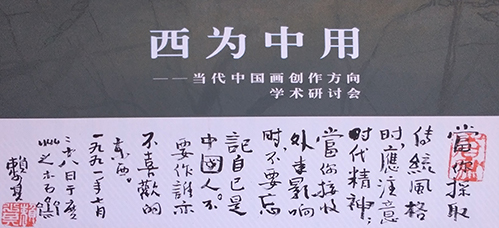 西为中用
——当代中国画创作方向
学术研讨会
當你採取
傳統風格
时,應注意
时代精神;
當你接收
外来影响
时不要忘
記自己是
中國人。不
要作誰亦
不喜歡的
东西。
一九九一年十月
八日于廣
州之木石齋
賴少其